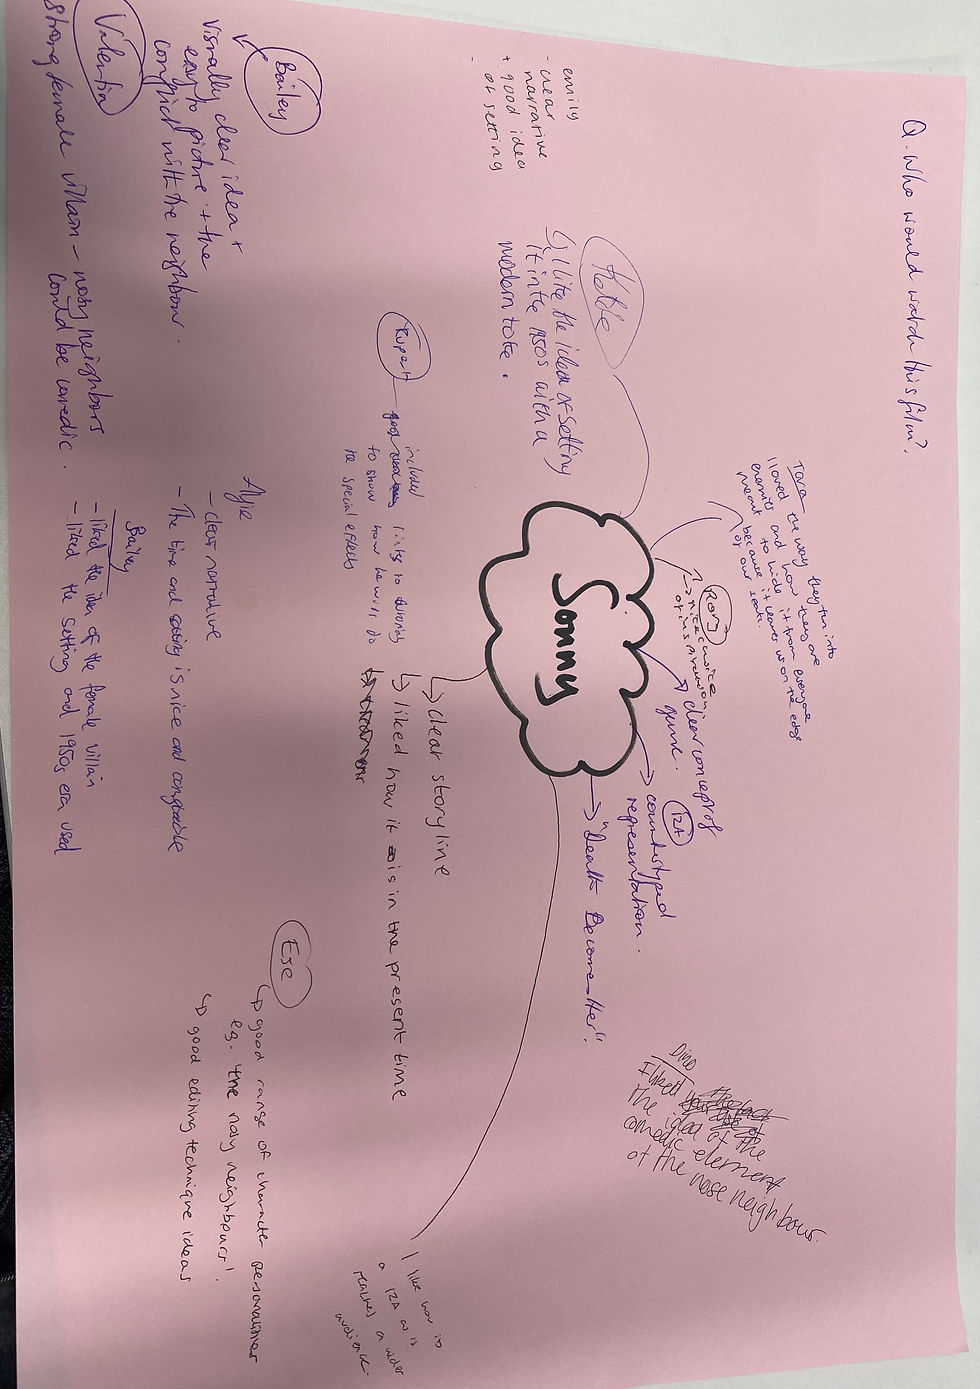 Q. Who would watch this film?
Tara - the way they turn into
enemies and how they are
I loved to hide it from everyone
meant because it leaves us on the edge
of our seats.
emily
- clear
narrative
+ good idea
of setting
-
I like the idea of setting
it in the 1950s with a
modern take.
Rory
nice choice
of
clear concept of
12A
countertyped
representation.
"Death Becomes Her".
Sonny
Dino
I liked
the idea of the
comedic element
of the nose neighbour.
Bailey
Visually clear idea +
easy to picture + the
conflict with the neighbour.
Valentin
strong female villain - nosy neighbors
could be comedic.
Rupert
included links to tutorials
to show how he will do
the special effects
clear storyline
liked how it is in the present time
- clear narrative
- The time and setting is nice and
Bailey
- liked the idea of the female villain
- liked the setting and 1950s era used
Ese
good range of character personalities
eg. 'the nosy neighbours'.
good editing technique ideas
I like how is
a 12A as it
reaches a wider
audience.